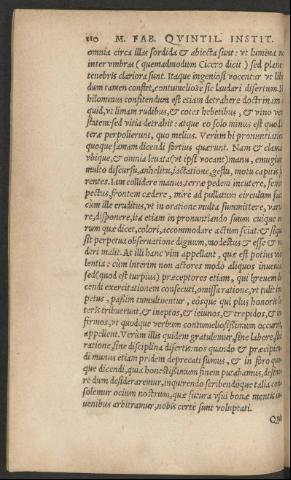 110 M. FAB. QVINTIL. INSTIT.
omnia circa illas sordida & abiecta sunt: vt lumina
inter vmbras (quemadmodum Cicero dicit) sed plane
tenebris clariora sunt. Itaque ingeniosi vocentur vt
dum tamen constet, contumeliose sic laudari disertum.
hilominus confitendum est etiam detrahere doctrinam
quid, vt limam rudibus, & cotes hebetibus, & vino
statem: sed vitia detrahit: atque eo solo minus est quod
teræ perpolierunt, quo melius. Verùm hi pronuntiatione
quoque famam dicendi fortius quærunt. Nam & clamant
vbique, & omnia leuata (vt ipsi vocant) manu, emugiunt
multo discursu, anhelitu, iactatione, gestu, motu capitis
rentes. Iam collidere manus, terræ pedem incutere,
pectus, frontem cædere, mirè ad pullatum circulum
cùm ille eruditus, vt in oratione multa summittere,
re, disponere, ita etiam in pronuntiando suum cuique
rum quæ dicet, colori, accommodare actum sciat: & si
sit perpetua obseruatione dignum, modestus & esse &
deri malit. At illi hanc vim appellant, quæ est potius
lentia: cùm interim non actores modò aliquos inuenias
sed (quod est turpius) præceptores etiam, qui breuem
cendi exercitationem consecuti, omissa ratione, vt tulit
petus, passim tumultuentur, eosque qui plus honoris
teris tribuerunt, & ineptos, & ieiunos, & trepidos, &
firmos, vt quodque verbum contumeliosissimum occurrit,
appellent. Verùm illis quidem gratulemur, sine labore,
ratione, sine disciplina disertis: nos quando & præcipiendi
di munus etiam pridem deprecati sumus, & in foro
que dicendi, quia honestissimum finem putabamus,
re dum desideraremur, inquirendo scribendoque talia
solemur ocium nostrum, quæ futura vsui bonæ mentis
uenibus arbitramur, nobis certè sunt voluptati.